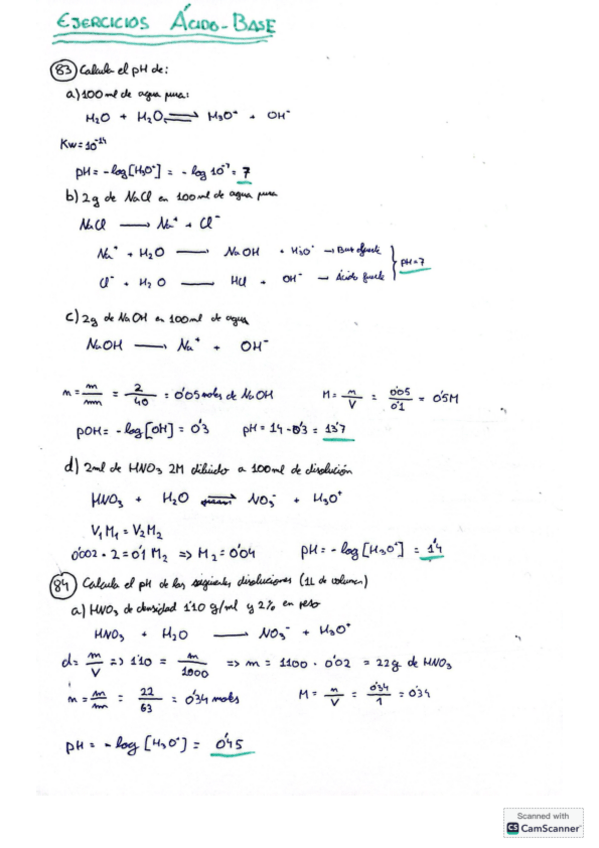 EJERCICIOS ÁCIDO-BASE
83 Calcula el pH de:
a) 100 ml de agua pura:
H₂O + H₂O ⇌ H₃O⁺ + OH⁻
Kw = 10⁻¹⁴
pH = - log [H₃O⁺] = - log 10⁻⁷ = 7
b) 2g de NaCl en 100 ml de agua pura
NaCl ⟶ Na⁺ + Cl⁻
Na⁺ + H₂O ⟶ NaOH + H₃O⁺ → Base fuerte
Cl⁻ + H₂O ⟶ HCl + OH⁻ → Ácido fuerte } pH = 7
c) 2g de NaOH en 100 ml de agua
NaOH ⟶ Na⁺ + OH⁻
n = m/mm = 2/40 = 0'05 moles de NaOH M = n/V = 0'05/0'1 = 0'5M
pOH = - log [OH] = 0'3 pH = 14 - 0'3 = 13'7
d) 2ml de HNO₃ 2M diluido a 100 ml de disolución
HNO₃ + H₂O ⇌ NO₃⁻ + H₃O⁺
V₁M₁ = V₂M₂
0'002 · 2 = 0'1 M₂ => M₂ = 0'04 pH = - log [H₃O⁺] = 1'4
84 Calcula el pH de las siguientes disoluciones (1L de volumen)
a) HNO₃ de densidad 1'10 g/ml y 2% en peso
HNO₃ + H₂O ⟶ NO₃⁻ + H₃O⁺
d = m/V => 1'10 = m/1000 => m = 1100 · 0'02 = 22g de HNO₃
n = m/mm = 22/63 = 0'34 moles M = n/V = 0'34/1 = 0'34
pH = - log [H₃O⁺] = 0'45
Scanned with
CS CamScanner